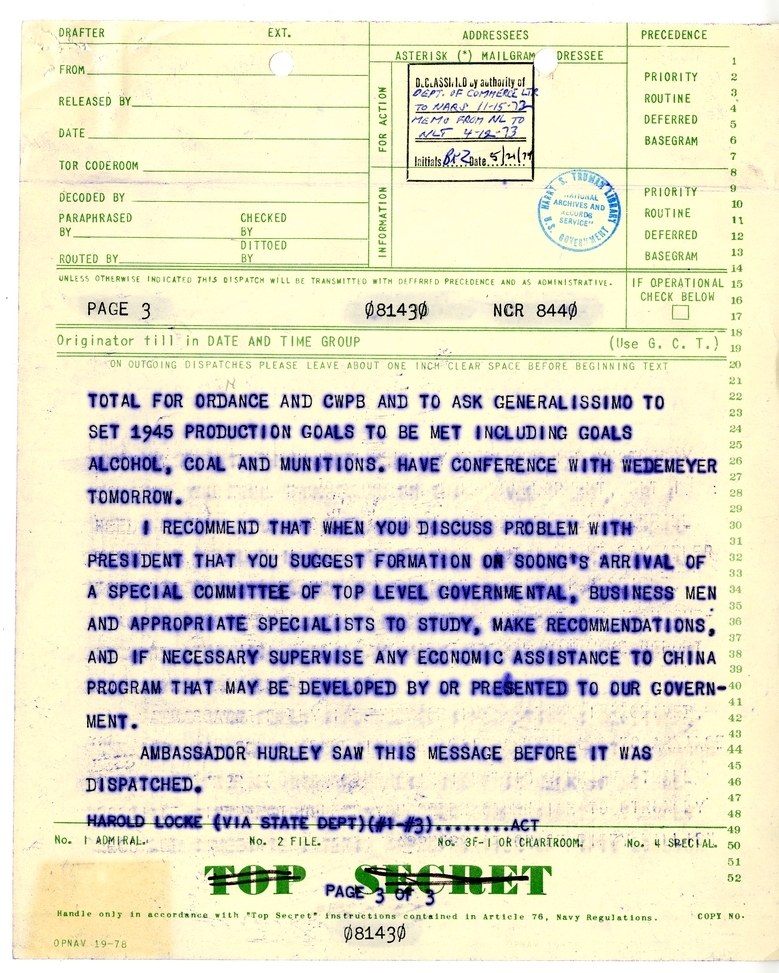 DRAFTER EXT. ADDRESSEES PRECEDENCE
ASTERISK (*) MAILGRAM DRESSEE
FROM
RELEASED BY
DATE
TOR CODEROOM
DECODED BY
PARAPHRASED CHECKED
BY BY
DITTOED
ROUTED BY BY
FOR ACTION
INFORMATION
DECLASSIFIED by authority of
DEPT. OF COMMERCE LTR
TO NARS 11-15-72
MEMO FROM NL TO
NLT 4-12-73
Initials Date 5/21/79
HARRY S. TRUMAN LIBRARY
"NATIONAL
ARCHIVES AND
RECORDS
SERVICE"
U.S. GOVERNMENT
PRIORITY
ROUTINE
DEFERRED
BASEGRAM
PRIORITY
ROUTINE
DEFERRED
BASEGRAM
UNLESS OTHERWISE INDICATED THIS DISPATCH WILL BE TRANSMITTED WITH DEFERRED PRECEDENCE AND AS ADMINISTRATIVE.
IF OPERATIONAL
CHECK BELOW
PAGE 3 Ø8143Ø NCR 844Ø
Originator fill in DATE AND TIME GROUP (Use G. C. T.)
ON OUTGOING DISPATCHES PLEASE LEAVE ABOUT ONE INCH CLEAR SPACE BEFORE BEGINNING TEXT
N
TOTAL FOR ORDANCE AND CWPB AND TO ASK GENERALISSIMO TO
SET 1945 PRODUCTION GOALS TO BE MET INCLUDING GOALS
ALCOHOL, COAL AND MUNITIONS. HAVE CONFERENCE WITH WEDEMEYER
TOMORROW.
I RECOMMEND THAT WHEN YOU DISCUSS PROBLEM WITH
PRESIDENT THAT YOU SUGGEST FORMATION ON SOONG'S ARRIVAL OF
A SPECIAL COMMITTEE OF TOP LEVEL GOVERNMENTAL, BUSINESS MEN
AND APPROPRIATE SPECIALISTS TO STUDY, MAKE RECOMMENDATIONS,
AND IF NECESSARY SUPERVISE ANY ECONOMIC ASSISTANCE TO CHINA
PROGRAM THAT MAY BE DEVELOPED BY OR PRESENTED TO OUR GOVERN-
MENT.
AMBASSADOR HURLEY SAW THIS MESSAGE BEFORE IT WAS
DISPATCHED.
HAROLD LOCKE (VIA STATE DEPT)(#1-#3)........ACT
1
2
3
4
5
6
7
8
9
10
11
12
13
14
15
16
17
18
19
20
21
22
23
24
25
26
27
28
29
30
31
32
33
34
35
36
37
38
39
40
41
42
43
44
45
46
47
48
49
50
51
52
No. 1 ADMIRAL. No. 2 FILE. No. 3F-1 OR CHARTROOM. No. 4 SPECIAL.
TOP SECRET
PAGE 3 OF 3
Handle only in accordance with "Top Secret" instructions contained in Article 76, Navy Regulations. COPY NO.
OPNAV 19-78
Ø8143Ø